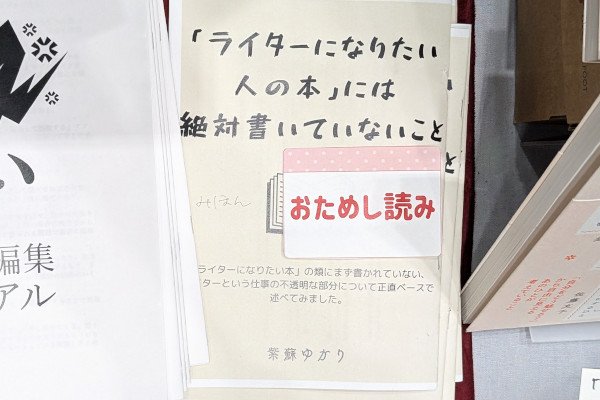 「ライターになりたい
人の本」には
絶対書いていないこと
みほん
おためし読み
ライターになりたい本」の類にまず書かれていない、
ターという仕事の不透明な部分について正直ベースで
述べてみました。
紫蘇ゆかり
い
編集
アル